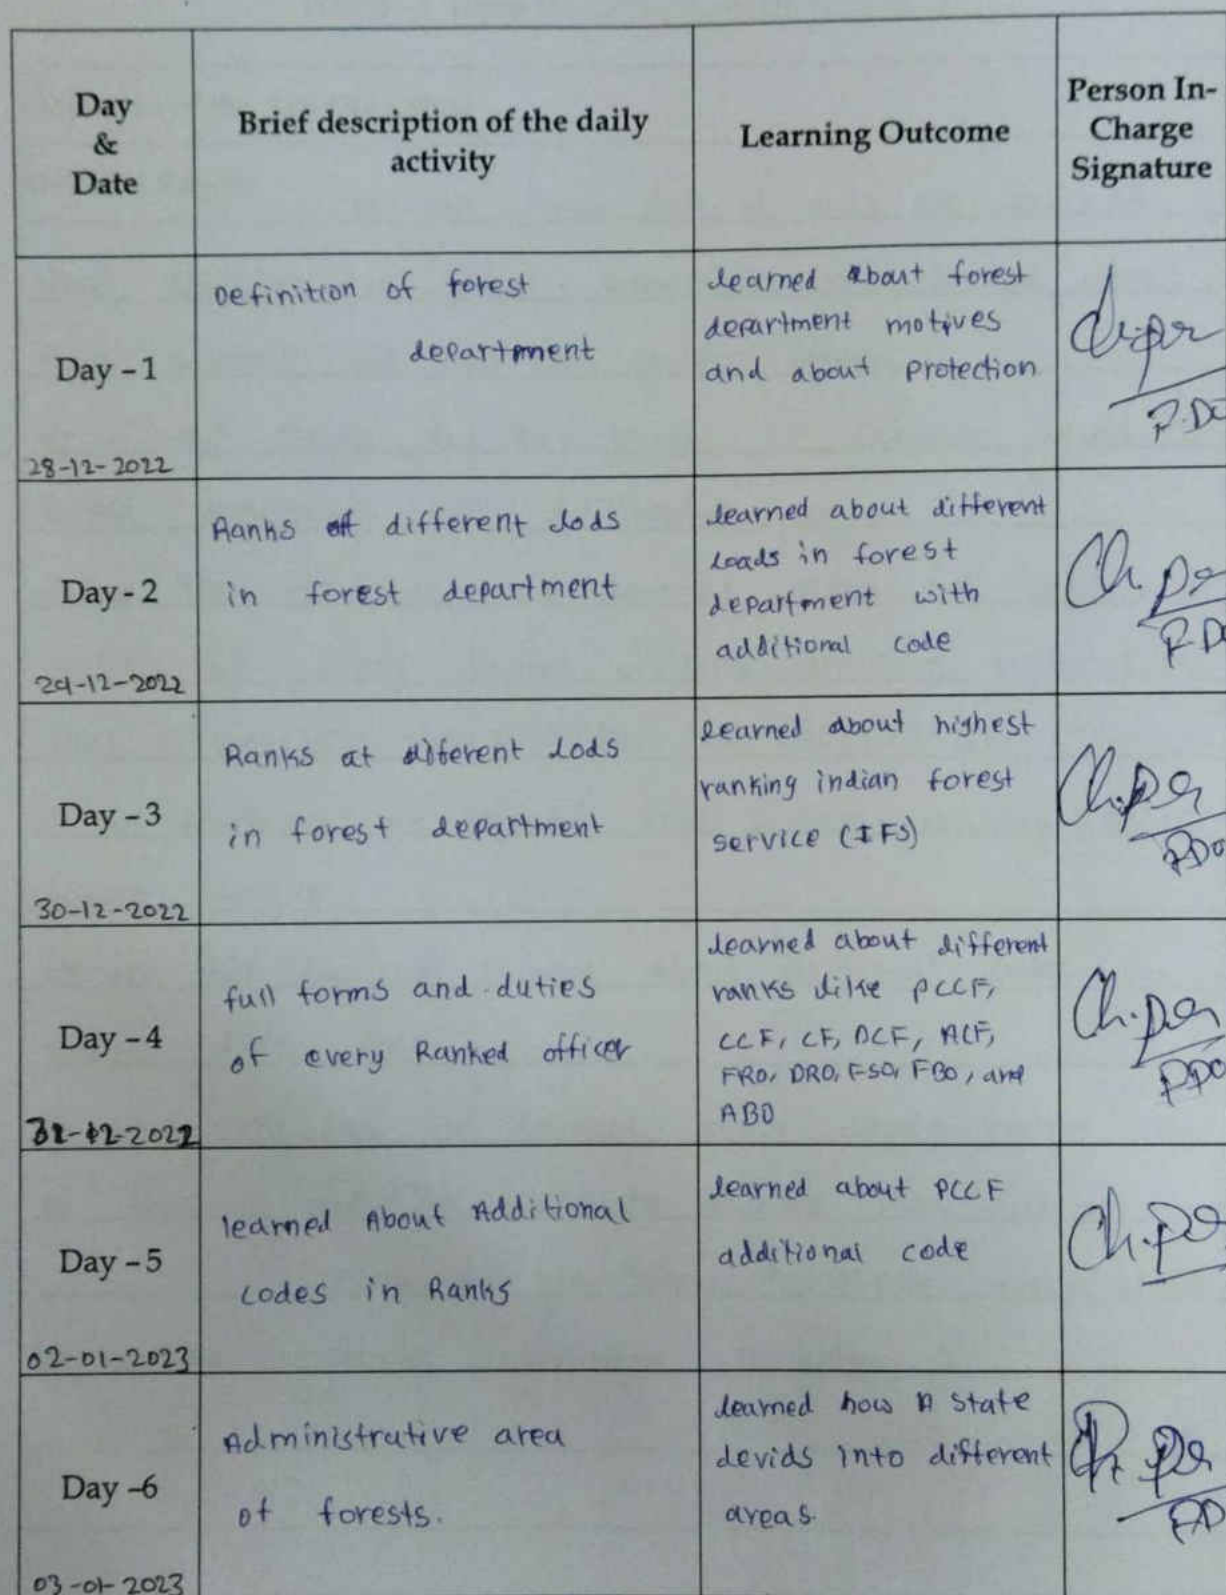 Day
&
Date
Brief description of the daily
activity
Learning Outcome
Person In-
Charge
Signature
Day – 1
28-12-2022
Definition of forest
department
learned about forest
department motives
and about protection
Day - 2
29-12-2022
Ranks at different lods
in forest department
learned about different
loads in forest
department with
additional code
Day – 3
30-12-2022
Ranks at diferent lods
in forest department
learned about highest
ranking indian forest
service (IFS)
PDO
Day – 4
31-12-2022
full forms and duties
of every Ranked officer
learned about different
ranks like PCCF,
CCF, CF, DCF, ACF,
FRO, DRO, FSO, FBO, and
ABO
PDO
Day – 5
02-01-2023
learned About Additional
codes in Ranks
learned about PCCF
additional code
Day –6
03-01-2023
Administrative area
of forests.
learned how A state
devids into different
areas.